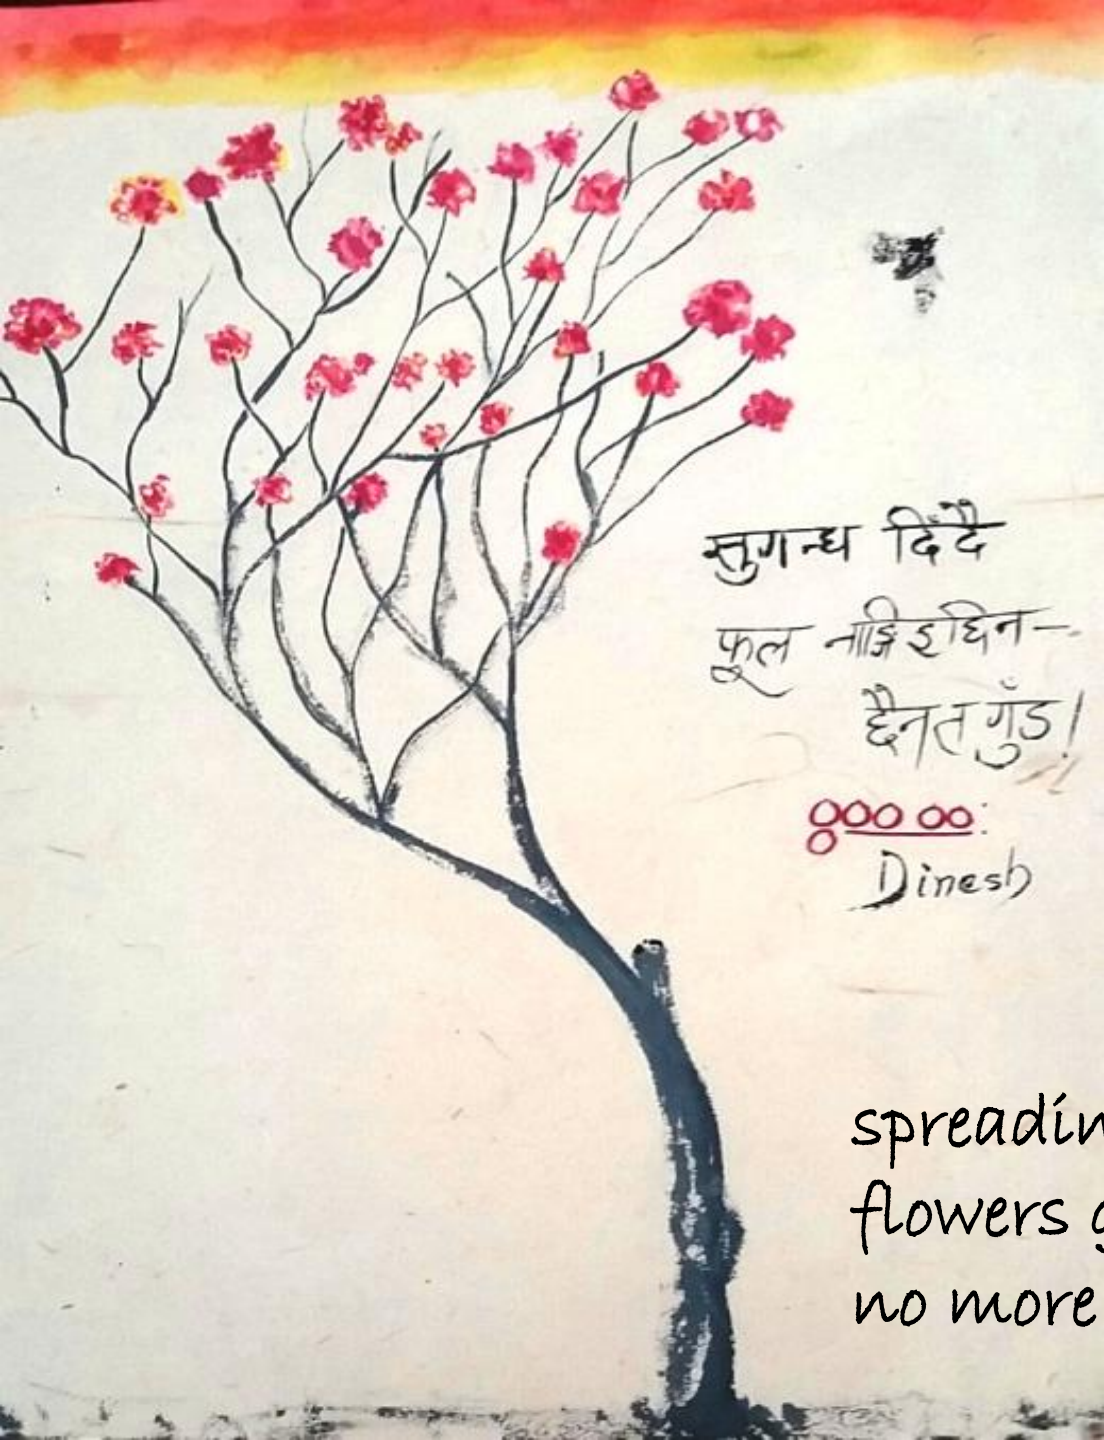 सुगन्ध दिँदै
फूल नाङ्गिइछिन –
छैनत गुँड !
Dinesh
spreadin
flowers g
no more